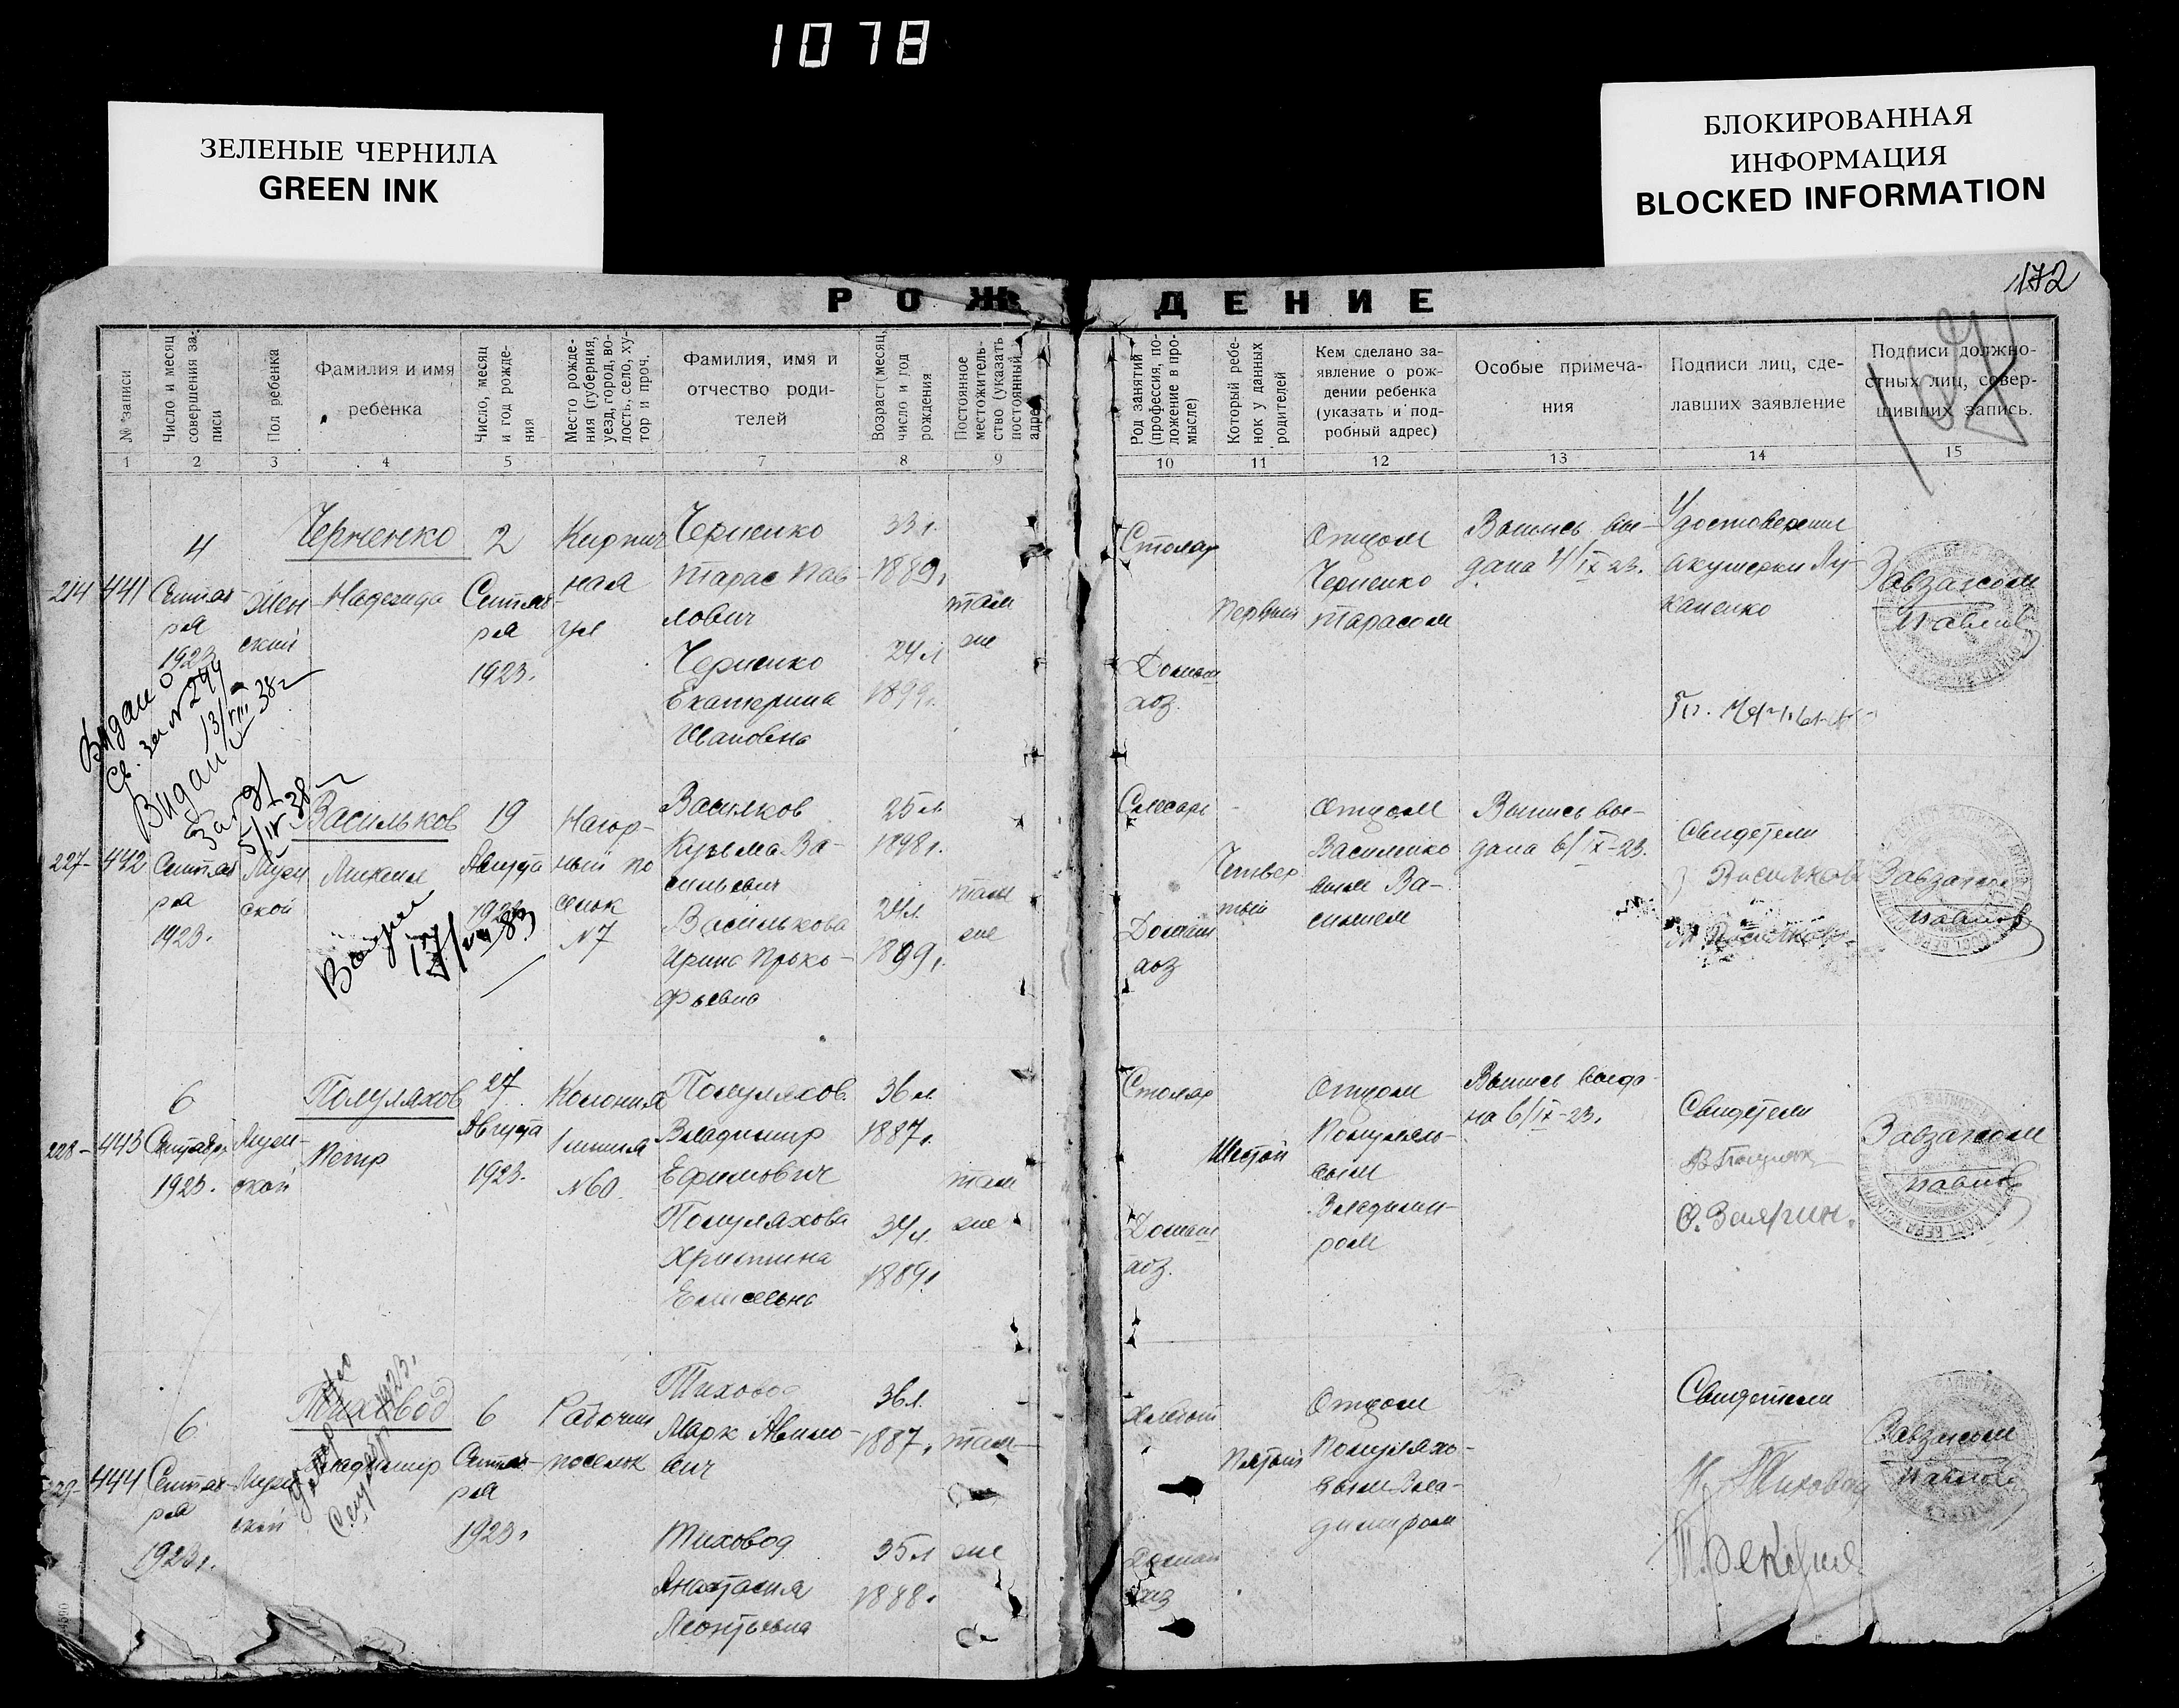 1078
ЗЕЛЕНЫЕ ЧЕРНИЛА
GREEN INK
БЛОКИРОВАННАЯ
ИНФОРМАЦИЯ
BLOCKED INFORMATION
172
РОЖДЕНИЕ
№ записи
Число и месяц
совершения за-
писи
Пол ребенка
Фамилия и имя
ребенка
Число, месяц
и год рожде-
ния
Место рожде-
ния (губерния,
уезд, город, во-
лость, село, ху-
тор и проч.
Фамилия, имя и
отчество роди-
телей
Возраст (месяц,
число и год
рождения
Постоянное
местожитель-
ство (указать
постоянный
адрес
Род занятий
(профессия, по-
ложение в про-
мысле)
Который ребе-
нок у данных
родителей
Кем сделано за-
явление о рож-
дении ребенка
(указать и под-
робный адрес)
Особые примеча-
ния
Подписи лиц, сде-
лавших заявление
Подписи должно-
стных лиц, совер-
шивших запись.
1 2 3 4 5 7 8 9 10 11 12 13 14 15
214 441
4
Сентяб-
ря
1923
Жен
ский
Черненко
Надежда
2
Сентяб-
ря
1923.
Кирпич
ная
ул
Черненко
Тарас Пав-
лович
Черненко
Екатерина
Ивановна
33 л.
1889г.
24 л
1899г.
там
же
Столяр
Домаш
хоз.
Первый
Отцом
Черненко
Тарасом
Выпись вы-
дана 4/IX-23.
Удостоверения
акушерки Лу-
каненко
Завзагсом
Павлов
за № 244
13/VIII 38 г
За № 91
5/IV 38 г
227- 442
Сентяб
ря
1923.
Муж
ской
Васильков
Михаил
19
Августа
1923
Нагор-
ный по
селок
№7
Васильков
Кузьма Ва-
сильевич
Василькова
Ирина Проко-
фьевна
25 л.
1898г.
24л.
1899г.
там
же
Слесарь
Домаш
хоз
Четвер
тый
Отцом
Выпись вы-
дана 6/IX-23.
Свидетели
Завзагсом
Павлов
17/VIII 83
228- 443
6
Сентября
1923.
Муж-
ской
Полуляхов
Петр
27
Августа
1923.
Колония
1 линия
№60.
Полуляхов
Владимир
Ефимович
Полуляхова
Христина
Елисеевна
36 л.
1887г.
34л.
1889г.
там
же
Столяр
Домаш
хоз.
Шестой
Отцом
Владими-
ром
Выпись выда-
на 6/IX-23.
Свидетели
Завзагсом
Павлов
444
6
Сентяб-
ря
1923г.
Муж-
ской
Тиховод
Владимир
6
Сентяб-
ря
1923г
Рабочий
поселок
Тиховод
Марк
Тиховод
Анастасия
Леонтьевна
36л.
1887г.
35л
1888г.
там
же
Домаш
хоз
Пятый
Отцом
Полуляхо-
вым Вла-
димиром
Свидетели
Завзагсом
Павлов